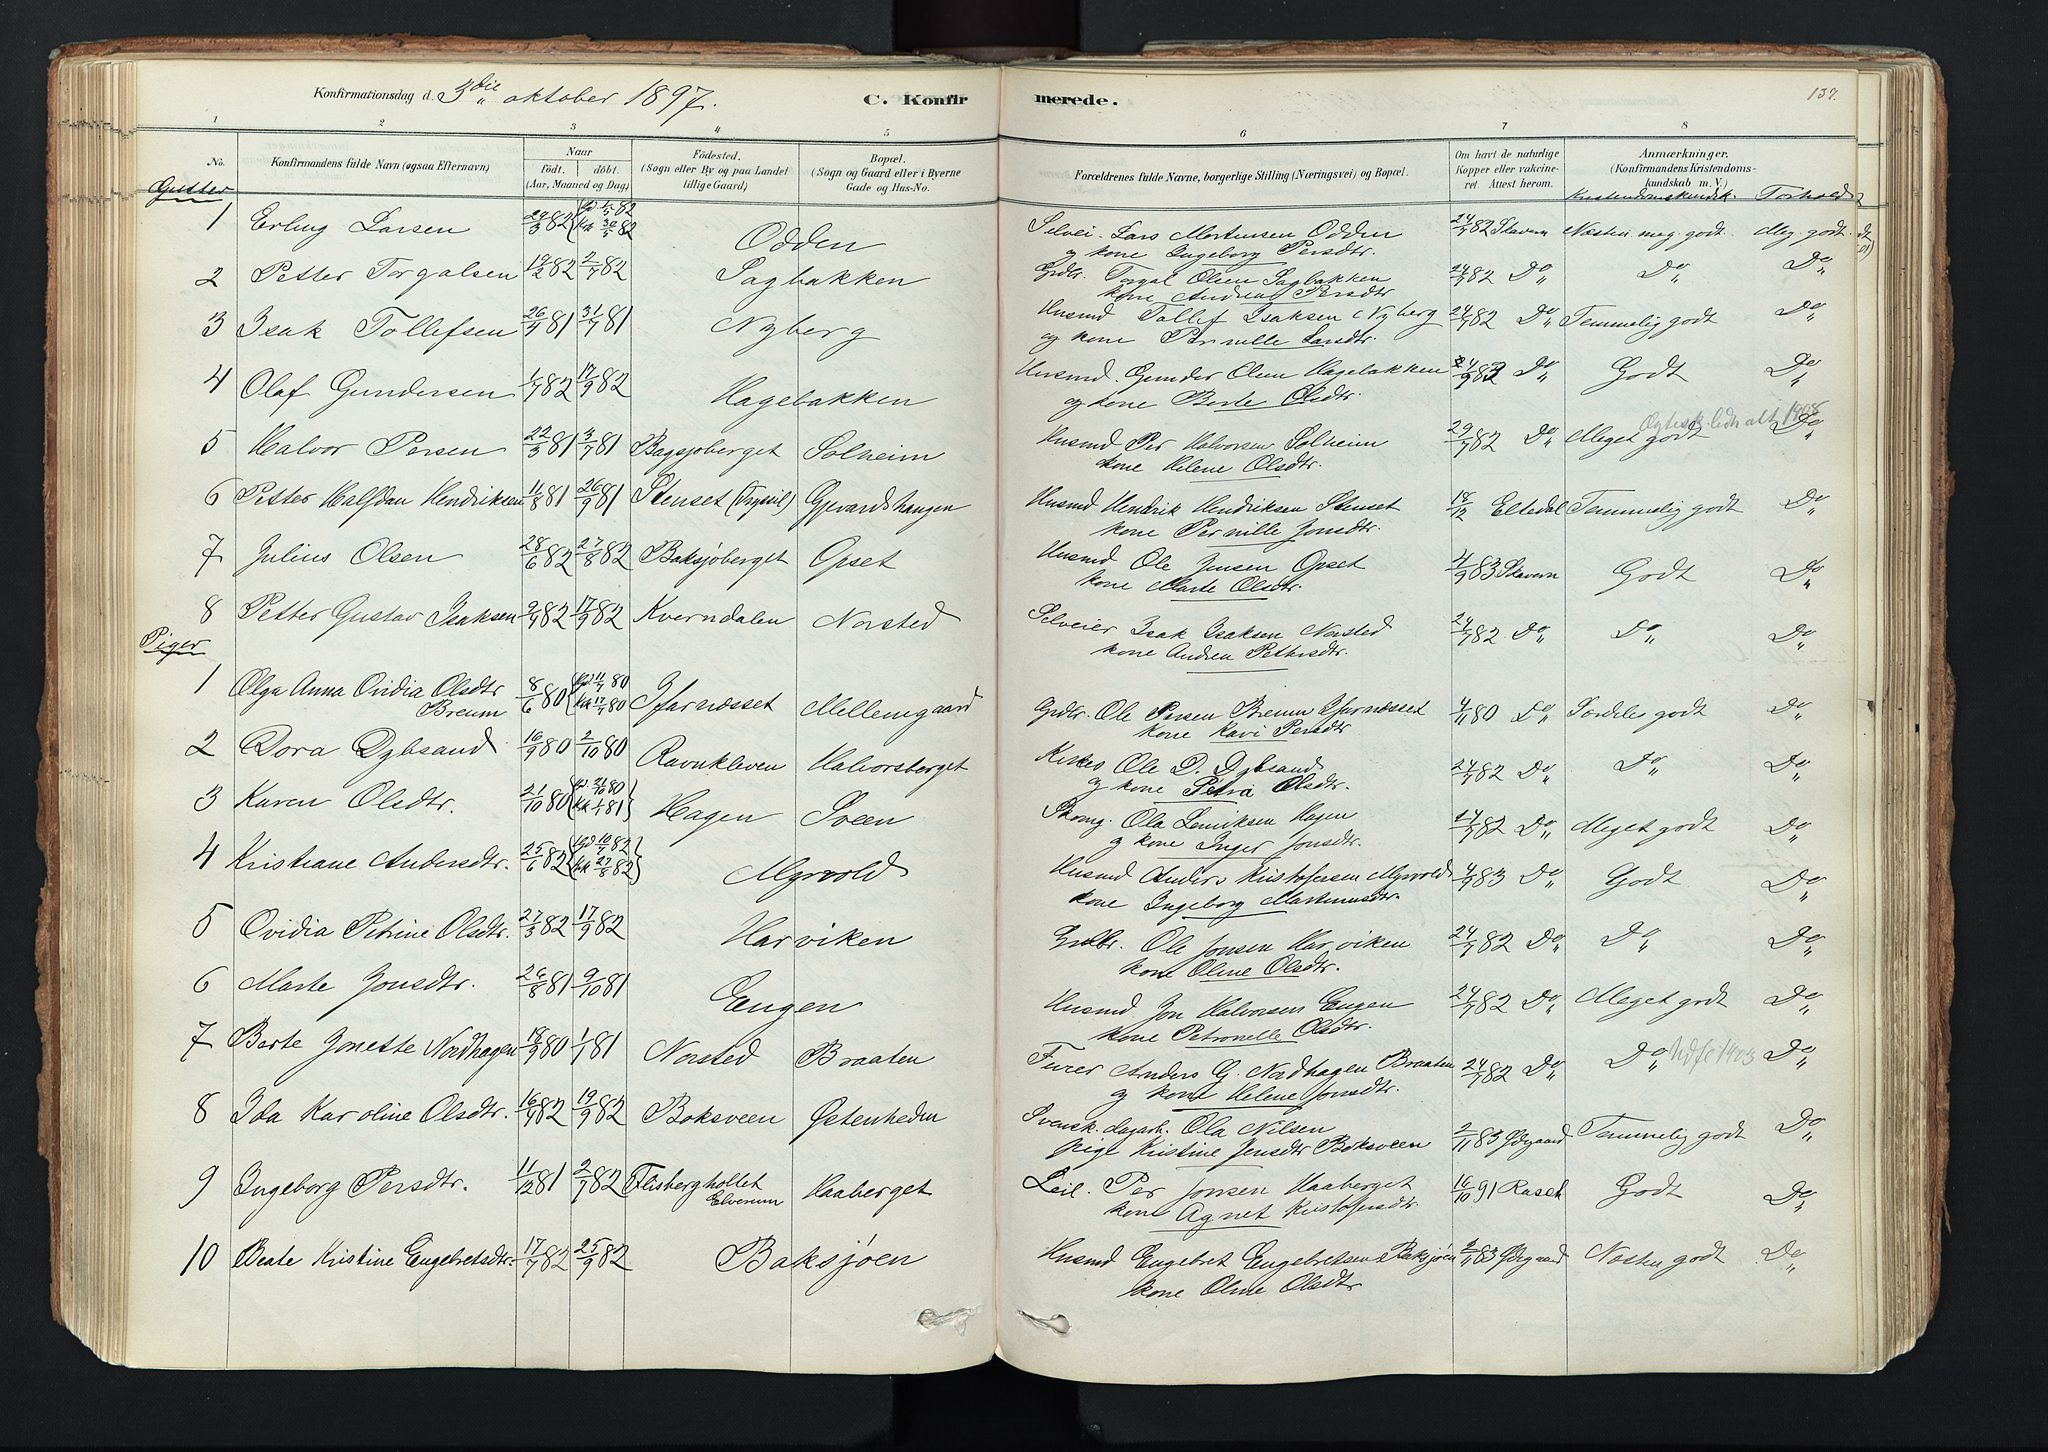 Konfirmationsdag d. 3die oktober 1897. C. Konfirmerede. 137.
1 2 3 4 5 6 7 8
No. Konfirmandens fulde Navn (ogsaa Efternavn) Naar født. døbt. (Aar, Maaned og Dag) Fødested. (Sogn eller By og paa Landet tillige Gaard) Bopæl. (Sogn og Gaard eller i Byerne Gade og Hus-No. Forældrenes fulde Navne, borgerlige Stilling (Næringsvei) og Bopæl. Om havt de naturlige Kopper eller vakcineret. Attest herom. Anmærkninger. (Konfirmandens Kristendomskundskab m. V.)
Kristendomskundsk. Forhold
Gutter
1 Erling Larsen 29/3 82 (hd 1/5 82 kk 30/5 82 Odden Selvei. Lars Mortensen Odden 24/7 82 Stavern Næsten meg. godt. Mg. godt.
og kone Ingeborg Persdtr.
2 Petter Torgalsen 19/2 82 2/7 82 Sagbakken Grdbr. Torgal Olsen Sagbakken 24/7 82 Do Do Do
kone Andrea Persdtr
3 Isak Tollefsen 26/4 81 31/7 81 Nyberg Husmd Tollef Isaksen Nyberg 24/7 82 Do Temmelig godt Do
og kone Pernille Larsdtr.
4 Olaf Gundersen 1/7 82 17/9 82 Hagebakken Husmd. Gunder Olsen Hagebakken 4/9 83 Do Godt Do
og kone Berte Olsdtr.
5 Halvor Persen 22/3 81 3/7 81 Bagsjøberget Solheim Husmd Per Halvorsen Solheim 29/7 82 Do Meget godt Do
kone Helene Olsdtr.
6 Petter Halfdan Hendriksen 11/8 81 26/9 81 Stenset (Trysil) Gjevardshaugen Husmd Hendrik Hendriksen Stenset 18/12 Eltedal Temmelig godt Do
kone Pernille Jonsdtr.
7 Julius Olsen 28/6 82 27/8 82 Baksjøberget Opset Husmd Ole Jensen Opset 4/9 83 Stavern Godt Do
kone Marte Olsdtr.
8 Petter Gustav Isaksen 9/7 82 17/9 82 Kverndalen Norsted Selveier Isak Isaksen Norsted 24/7 82 Do Do Do
kone Andrea Pettersdtr.
Piger
1 Olga Anna Ovidia Olsdtr 8/6 80 (hd 11/7 80 kk 17/7 80 Ifarnæsset Mellemgaard Grdbr. Ole Persen Breum Ifarnæsset 4/11 80 Do Særdeles godt Do
Breum kone Kari Persdtr
2 Dora Dybsand 16/9 80 2/10 80 Ravnkleven Halvorsberget Kirkes. Ole D. Dybsand 24/7 82 Do Do Do
og kone Petra Olsdtr.
3 Karen Olsdtr. 21/10 80 (hd 21/10 80 kk 1/1 81) Hagen Sveen Skomg. Ola Lenriksen Hagen 24/7 82 Do Meget godt Do
og kone Inger Jonsdtr.
4 Kristiane Andersdtr. 25/6 82 (hd 10/7 82 kk 27/8 82) Myrvold Husmd Anders Kristofersen Myrvold 4/9 83 Do Godt. Do
kone Ingeborg Martinusdtr.
5 Ovidia Petrine Olsdtr. 27/3 82 17/9 82 Harviken Grdbr. Ole Jonsen Harviken 24/7 82 Do Do Do
kone Oline Olsdtr.
6 Marte Jonsdtr. 26/8 81 9/10 81 Engen Husmd Jon Halvorsen Engen 24/7 82 Do Meget godt Do
kone Petronelle Olsdtr.
7 Berte Jonette Nordhagen 18/9 80 1/1 81 Norsted Braaten Furer Anders G. Nordhagen Braaten 24/7 82 Do Do Do
og kone Helene Jonsdtr.
8 Ida Karoline Olsdtr. 16/7 82 19/9 82 Boksveen Østenheden Svensk. dagarb. Ola Nilsen 2/11 83 Ødegaard Temmelig godt Do
pige Kristine Jensdtr Boksveen
9 Ingeborg Persdtr. 11/12 81 2/7 82 Flisberghollet Haaberget Leil. Per Jonsen Haaberget 16/10 91 Rasch Godt Do
Elverum kone Agnet Kristofersdtr.
10 Beate Kristine Engebretsdtr. 17/7 82 25/9 82 Baksjøen Husmd Engebret Engebretsen Baksjøen 2/11 83 Ødegaard Næsten godt Do
kone Oline Olsdtr